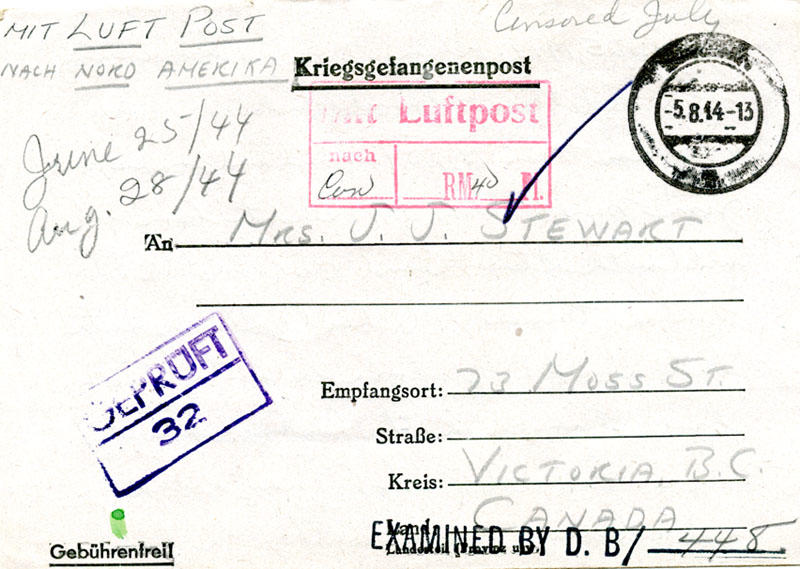 MIT LUFT POST
Censored July
NACH NORD AMERIKA
Kriegsgefangenenpost
June 25/44
Aug. 28/44
Mit Luftpost
nach
RM 40
-5.8.44-13
An Mrs. J. J. STEWART
GEPRÜFT
32
Empfangsort: 73 Moss St.
Straße:
Kreis: VICTORIA, B.C.
Land: CANADA
Landesteil (Provinz usw.)
EXAMINED BY D. B/ 448
Gebührenfrei!